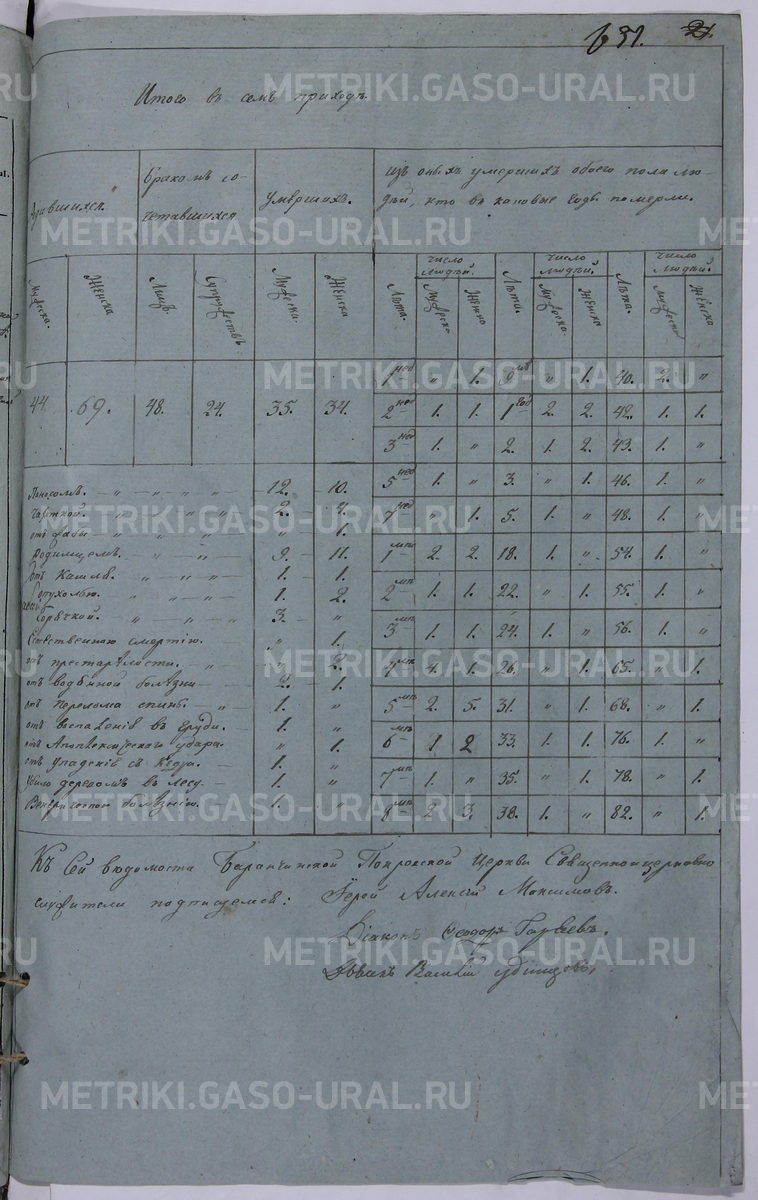 631. 21.
Итого въ семъ приходѣ.
Бракомъ со-
четавшихся
умершихъ.
изъ оныхъ умершихъ обоего пола лю-
дей, кто въ каковые годы померли.
Женска Лицъ Супружествъ Мужеска Женска Лѣта. число людей. Мужеска Женско Лѣта. число людей. Мужеска Женска Лѣта. число людей. Мужеска Женска
44. 69. 48. 24. 35. 34.
1 нед „ 1. „ 1. 40. 2. „
2 нед 1. 1. 1 год 2. 2. 42. 1. 1.
3 нед 1. „ 2. 1. 2. 43. 1. „
5 нед „ 3. „ 1. 46. 1. „
7 нед 1. 5. 1. „ 48. 1. „
1 мѣс 2. 2. 18. 1. „ 54. 1. „
2 мѣс 1. 1. 22. „ 1. 55. 1. „
3 мѣс 1. 1. 24. 1. „ 56. 1. „
4 мѣс 4. 1. 26. „ 1. 65. „ 1.
5 мѣс 2. 5. 31. „ 1. 68. „ 1.
6 мѣс 1 2 33. 1. 1. 76. 1. „
7 мѣс 1. „ 35. „ 1. 78. „ 1.
8 мѣс 2 3. 38. 1. „ 82. „ 1.
Поносомъ. 12. 10.
„ 1.
Родимцемъ. 9. 11.
отъ Кашля. 1. 1.
Опухолью. 1. 2.
Горячкой. 3. „
Естественною смертію. „ 1.
отъ престарѣлости. 2.
отъ водяной болѣзни 2. 1.
отъ перелома спины. 1. „
отъ въ груди. 1. „
отъ Апоплексическаго удара. „ 1.
отъ Упадскія съ Кедра. 1. „
Убило деревомъ въ лесу. 1. „
Венерическою болѣзнію. 1. „
Къ Сей вѣдомости Баранчинской Покровской Церкви Священноцерковно
служители подписуемся: Іерей Алексій Максимовъ.
Діаконъ Ѳеодоръ
METRIKI.GASO-URAL.RU